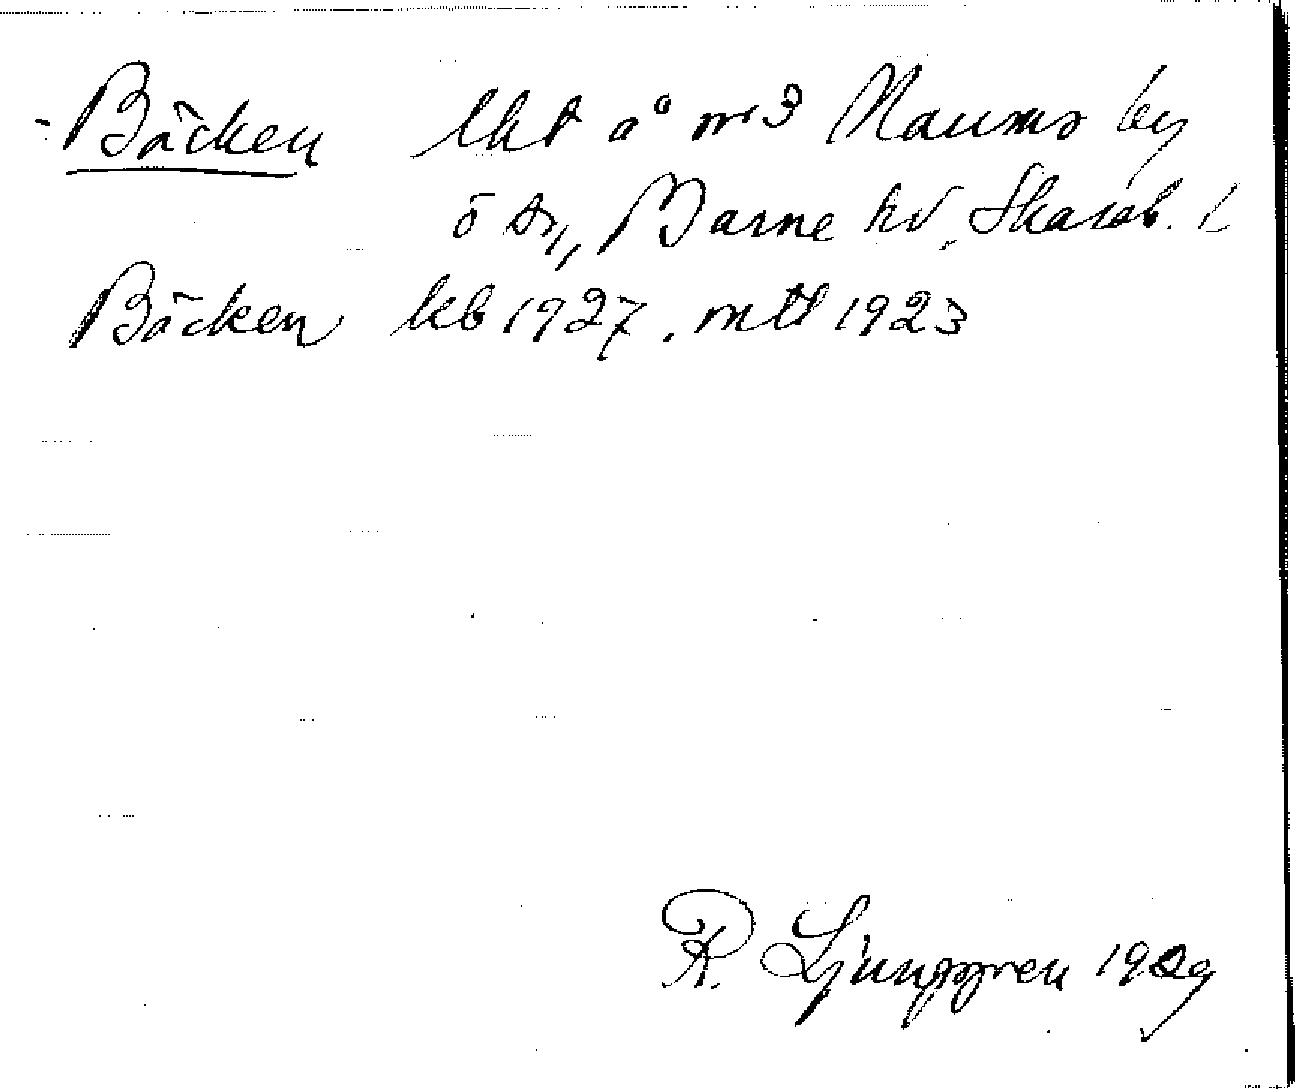 Bäcken lht å nr 3 Naums by
ö sn, Barne hd, Skarab. l
Bäcken kb 1927, mtl 1923
R. Ljunggren 1929